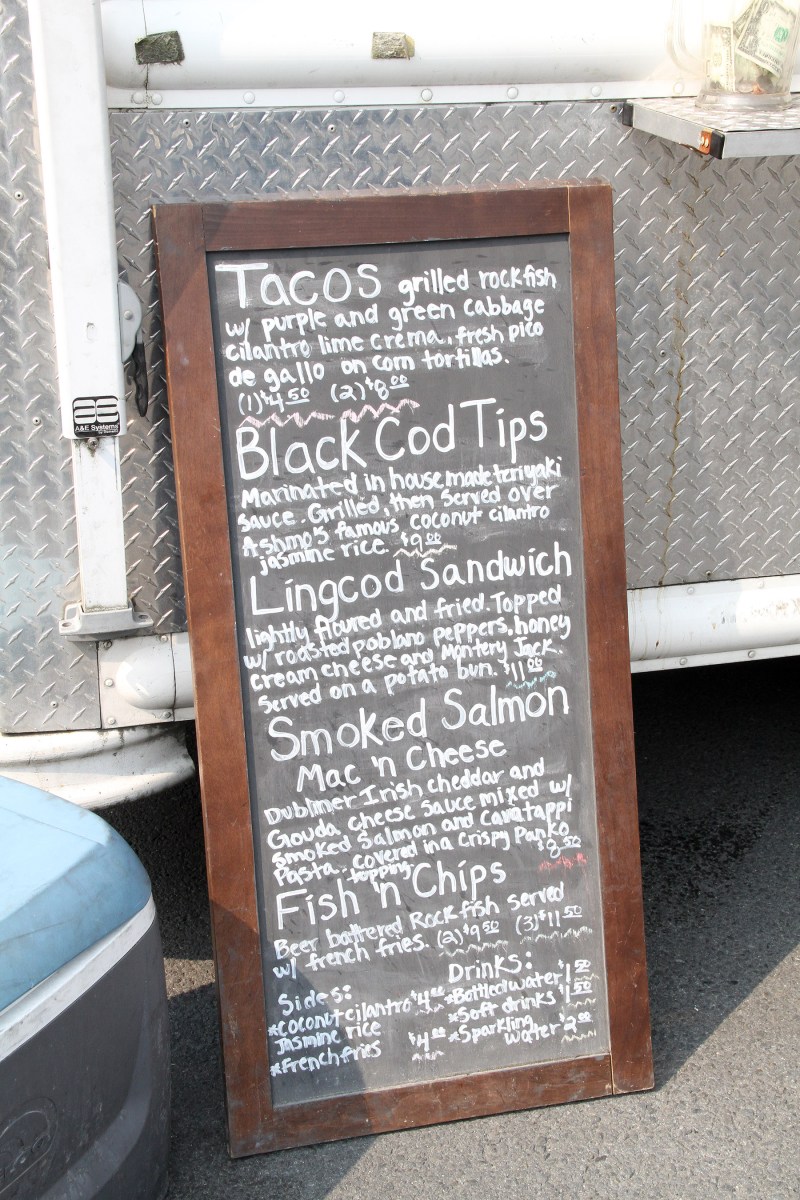 Tacos grilled rockfish
w/ purple and green cabbage
cilantro lime crema, fresh pico
de gallo on corn tortillas.
(1) $4.50 (2) $8.00
Black Cod Tips
Marinated in house made teriyaki
sauce. Grilled, then served over
Ashmo's famous coconut cilantro
jasmine rice. $9.00
Lingcod Sandwich
lightly floured and fried. Topped
w/ roasted poblano peppers, honey
cream cheese and Montery Jack.
Served on a potato bun. $11.00
Smoked Salmon
Mac 'n Cheese
Dubliner Irish cheddar and
Gouda cheese sauce mixed w/
smoked Salmon and Cavatappi
Pasta. covered in a crispy Panko
topping. $8.50
Fish 'n Chips
Beer battered Rockfish served
w/ french fries. (2) $9.50 (3) $11.50
Sides:
*Coconut cilantro $4.00
Jasmine rice
*French fries $4.00
Drinks:
*Bottled water $1.50
*Soft drinks $1.50
*Sparkling
water $2.00
A&E Systems